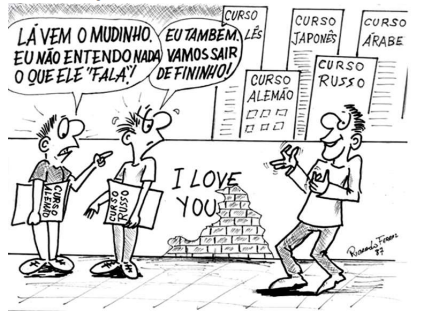 LÁ VEM O MUDINHO.
EU NÃO ENTENDO NADA
O QUE ELE "FALA"!
EU TAMBÉM.
VAMOS SAIR
DE FININHO!
CURSO
LÊS
CURSO
JAPONÊS
CURSO
ÁRABE
CURSO
ALEMÃO
CURSO
RUSSO
CURSO
ALEMÃO
CURSO
RUSSO
I LOVE
YOU
Ricardo Ferraz
87